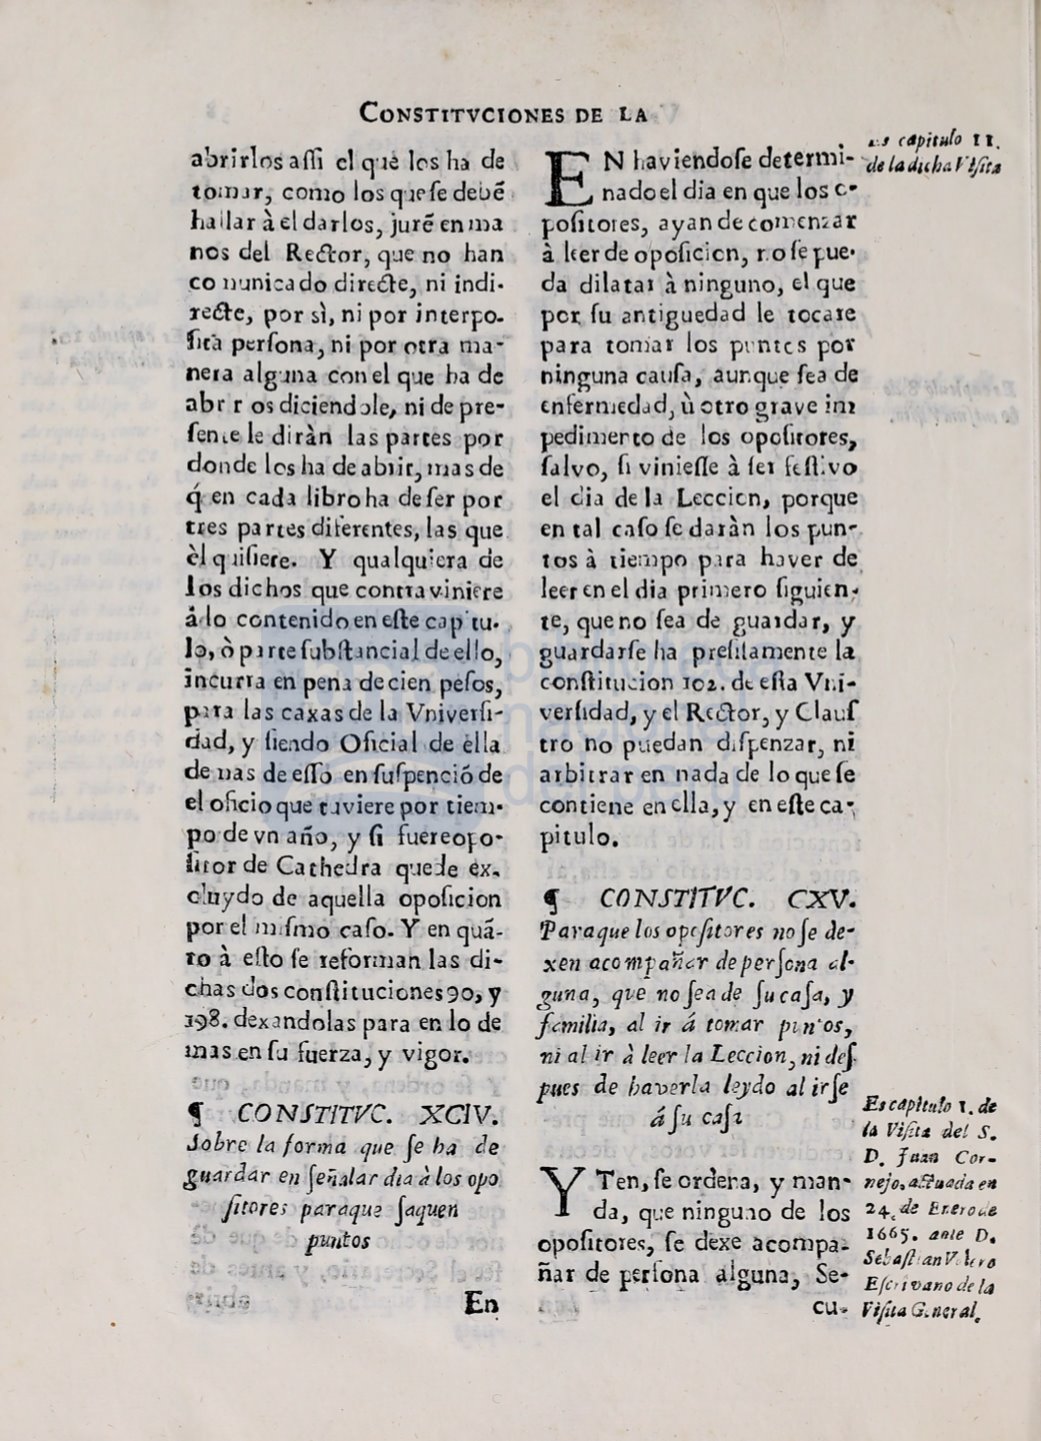 CONSTITVCIONES DE LA
abrirlos assi el que los ha de
tomar, como los que se debẽ
hallar à el darlos, jurẽ en ma
nos del Rector, que no han
comunicado directe, ni indi-
recte, por sì, ni por interpo-
sita persona, ni por otra ma-
nera alguna con el que ha de
abrir os diciendole, ni de pre-
sente le diràn las partes por
donde los ha de abrir, mas de
q̃ en cada libro ha de ser por
tres partes diferentes, las que
èl quisiere. Y qualquiera de
los dichos que contraviniere
à lo contenido en este capitu-
lo, ò parte substancial de ello,
incurra en pena de cien pesos,
para las caxas de la Vniversi-
dad, y siendo Oficial de ella
de mas de esso en suspenció de
el oficio que tuviere por tiem-
po de vn año, y si fuere opo-
sitor de Cathedra quede ex-
cluydo de aquella oposicion
por el mismo caso. Y en quã-
to à esto se reforman las di-
chas dos constituciones 90, y
198. dexandolas para en lo de
mas en su fuerza, y vigor.
¶ CONSTITVC. XCIV.
Sobre la forma que se ha de
guardar en señalar dia à los opo
sitores paraque saquen
puntos
En
EN haviendose determi-
nado el dia en que los o-
positores, ayan de comenzar
à leer de oposicion, no se pue-
da dilatar à ninguno, el que
por su antiguedad le tocare
para tomar los puntos por
ninguna causa, aunque sea de
enfermedad, ù otro grave im
pedimento de los opositores,
salvo, si viniesse à ser festivo
el dia de la Leccion, porque
en tal caso se daràn los pun-
tos à tiempo para haver de
leer en el dia primero siguien-
te, que no sea de guardar, y
guardarse ha presisamente la
constitucion 102. de esta Vni-
versidad, y el Rector, y Claus
tro no puedan dispenzar, ni
arbitrar en nada de lo que se
contiene en ella, y en este ca-
pitulo.
¶ CONSTITVC. CXV.
Paraque los opositores no se de-
xen acompañar de persona al-
guna, que no sea de su casa, y
familia, al ir á tomar puntos,
ni al ir à leer la Leccion, ni des
pues de haverla leydo al irse
á su casa
YTen, se ordena, y man-
da, que ninguno de los
opositores, se dexe acompa-
ñar de persona alguna, Se-
cu-
Es capitulo 11.
de la dicha Visita
Es capitulo 1. de
la Visita del S.
D. Juan Cor-
nejo, actuada en
24. de Enero de
1665. ante D.
Sebastian Valero
Escrivano de la
Visita General.